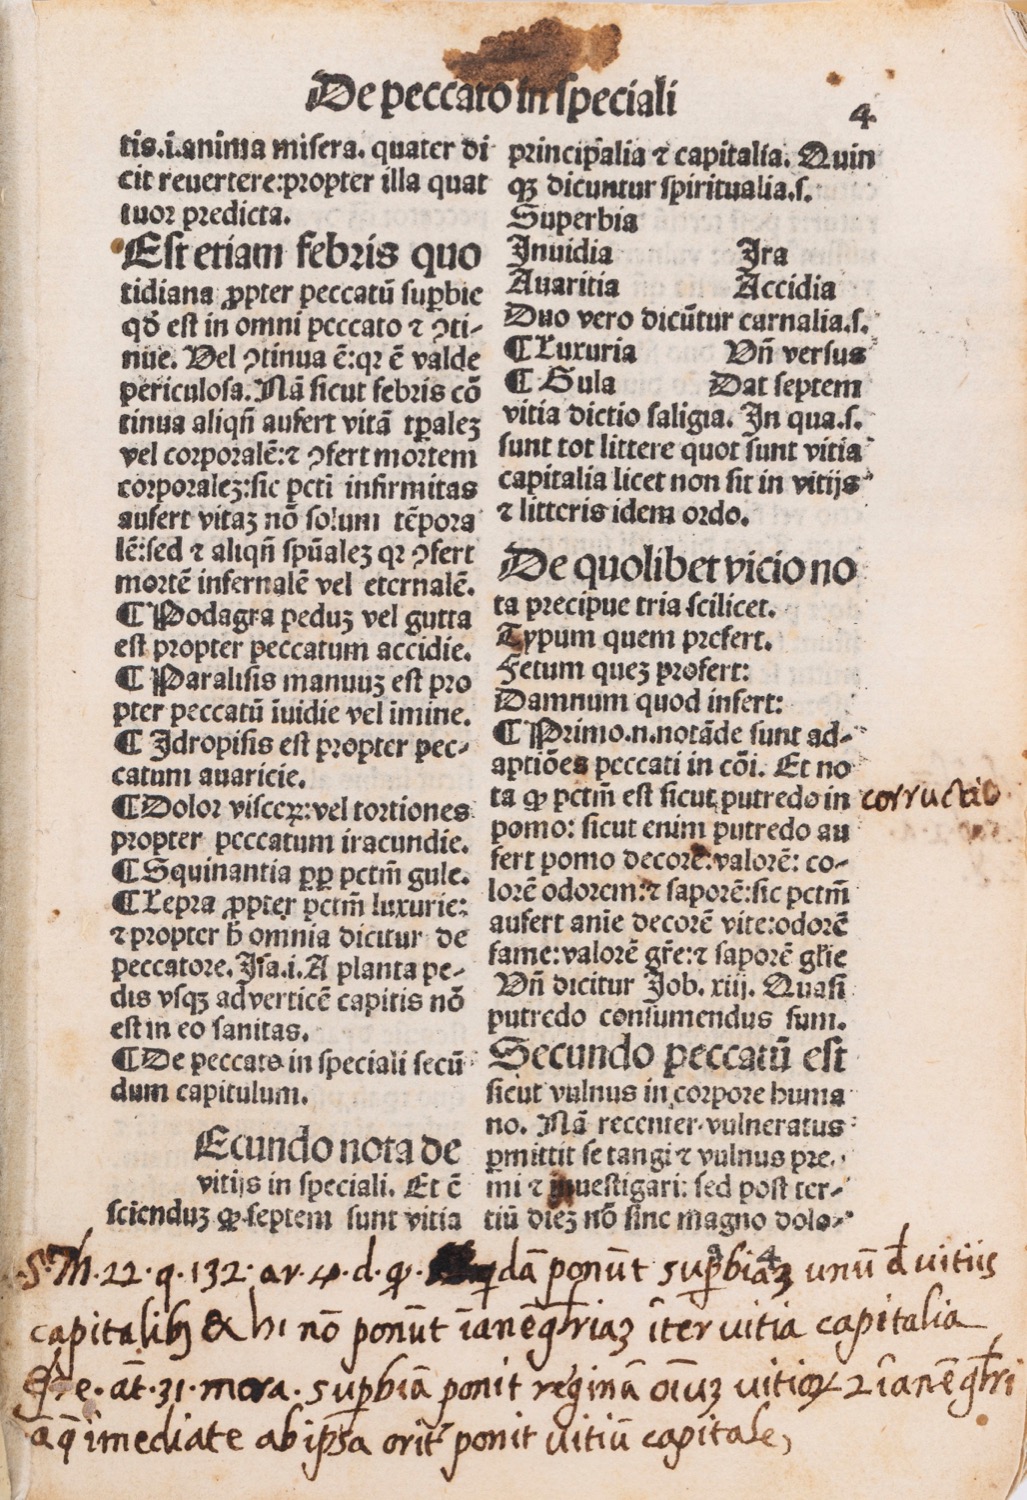 De peccato in speciali
4
tis.i.anima misera. quater di
cit reuertere:propter illa quat
tuor predicta.
Est etiam febris quo
tidiana ꝓpter peccatū suꝑbie
qđ est in omni peccato ⁊ ꝯti-
nue. Vel ꝯtinua ē:qꝛ ē valde
periculosa. Nā sicut febris cō
tinua aliqñ aufert vitā tꝑaleꝫ
vel corporalē:⁊ ꝯfert mortem
corporaleꝫ:sic pcti infirmitas
aufert vitaꝫ nō solum tēpora
lē:sed ⁊ aliqñ spūaleꝫ qꝛ ꝯfert
mortē infernalē vel eternalē.
¶ Podagra peduꝫ vel gutta
est propter peccatum accidie.
¶ Paralisis manuuꝫ est pro
pter peccatū īuidie vel īmine.
¶ Idropisis est propter pec-
catum auaricie.
¶ Dolor visceꝝ:vel tortiones
propter peccatum iracundie.
¶ Squinantia ꝓp pctm̄ gule.
¶ Lepra ꝓpter pctm̄ luxurie:
⁊ propter h̄ omnia dicitur de
peccatore. Isa.i. A planta pe-
dis vsqꝫ ad verticē capitis nō
est in eo sanitas.
¶ De peccato in speciali secū
dum capitulum.
Ecundo nota de
vitijs in speciali. Et ē
scienduꝫ ꝙ septem sunt vitia
principalia ⁊ capitalia. Quin
qꝫ dicuntur spiritualia.s.
Superbia
Inuidia Ira
Auaritia Accidia
Duo vero dicūtur carnalia.s.
¶ Luxuria Vñ versus
¶ Gula Dat septem
vitia dictio saligia. In qua.s.
sunt tot littere quot sunt vitia
capitalia licet non sit in vitijs
⁊ litteris idem ordo.
De quolibet vicio no
ta precipue tria scilicet.
Typum quem prefert.
Fetum queꝫ profert:
Damnum quod infert:
¶ Primo.n.notāde sunt ad-
aptiōes peccati in cōi. Et no
ta ꝙ pctm̄ est sicut putredo in corructio
pomo: sicut enim putredo au
fert pomo decorē:valorē: co-
lorē odorem:⁊ saporē:sic pctm̄
aufert anie decorē vite:odorē
fame:valorē gr̄e:⁊ saporē gl̄ie
Vñ dicitur Job. xiij. Quasi
putredo consumendus sum.
Secundo peccatū est
sicut vulnus in corpore huma
no. Nā recenter vulneratus
ꝑmittit se tangi ⁊ vulnus pre-
mi ⁊ inuestigari: sed post ter-
tiū dieꝫ nō sine magno dolo-
S. Th. 22. q. 132. ar. 4. d. ꝙ qdā ponūt suꝑbiaꝫ unū d̄ uitiis
capitalibꝫ & hi nō ponūt īanē gl̄riaꝫ īter uitia capitalia
at. 31. mora. suꝑbiā ponit reginā oīuꝫ uitioꝝ ⁊ īanē gl̄ri
ā q̄ imediate ab ipsa orit ponit uitiū capitale,